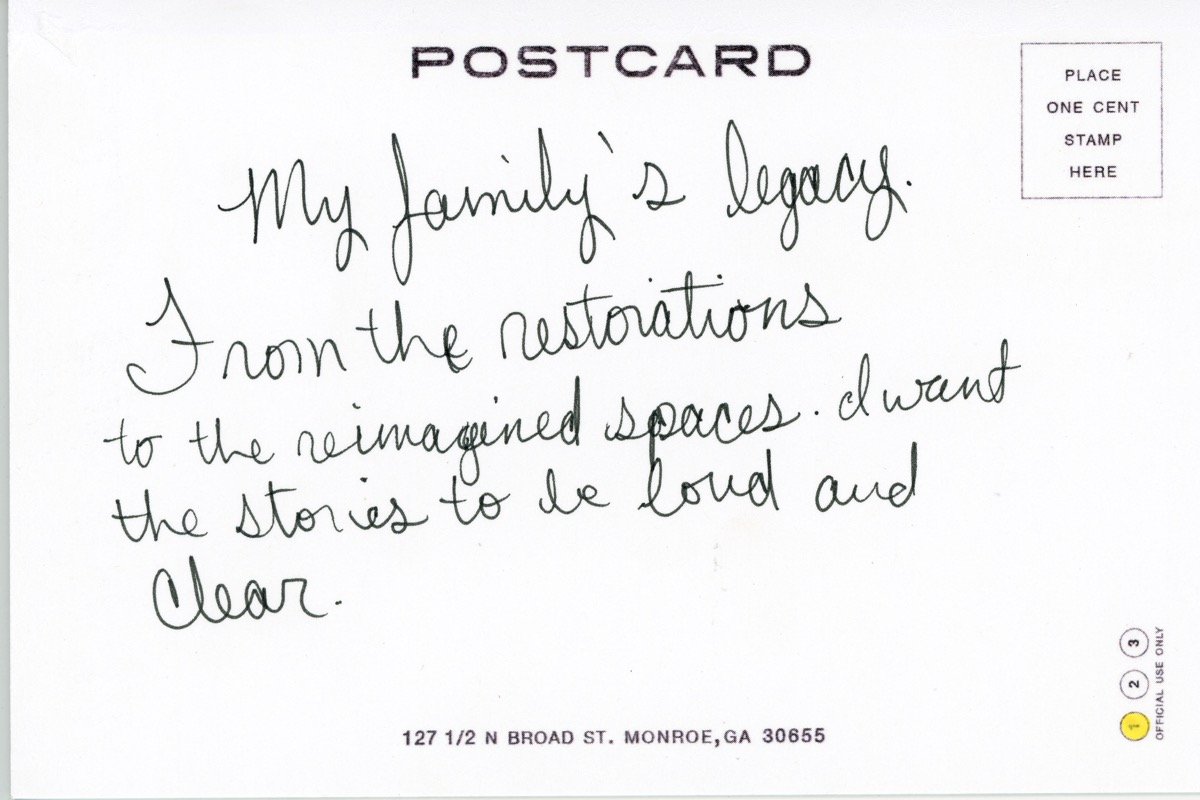 POSTCARD
PLACE
ONE CENT
STAMP
HERE
My family's legacy.
From the restorations
to the reimagined spaces. I want
the stories to be loud and
Clear.
127 1/2 N BROAD ST. MONROE, GA 30655
1 2 3
OFFICIAL USE ONLY